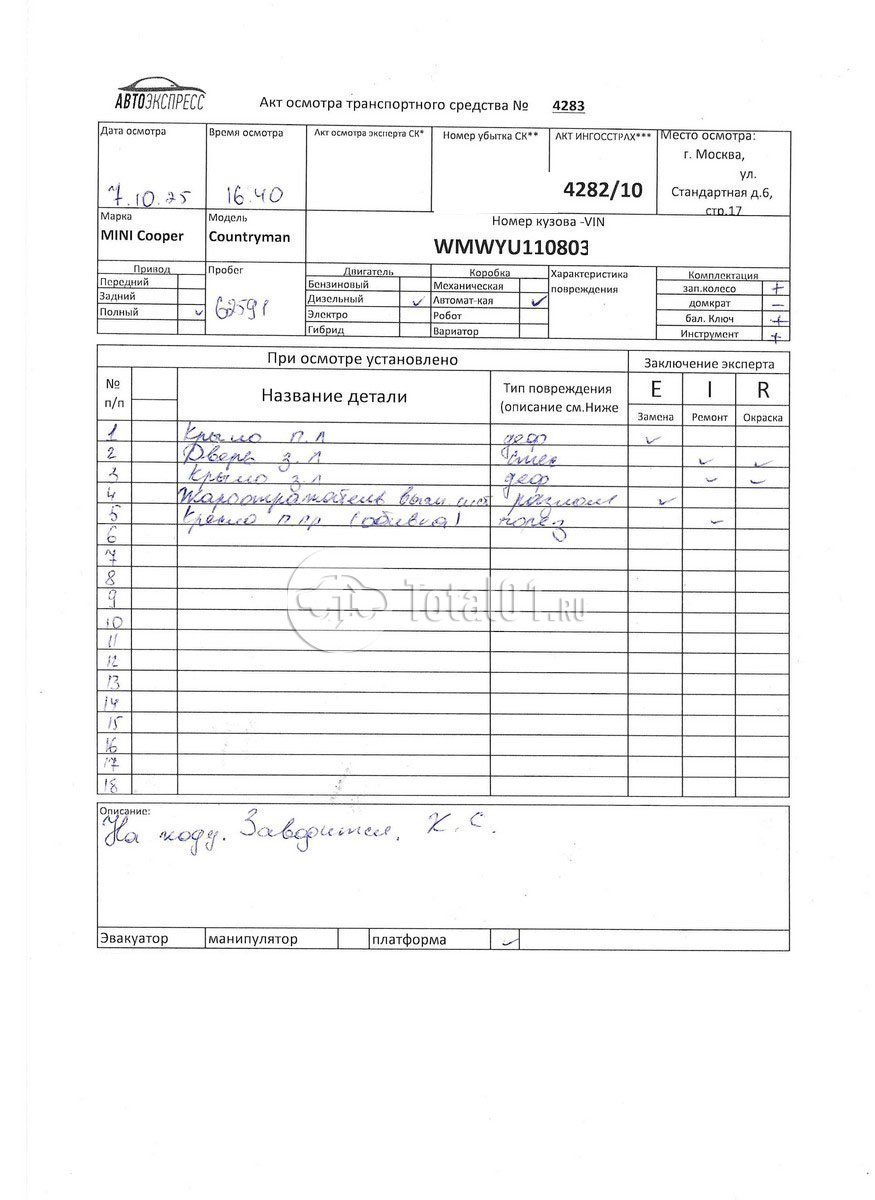 АВТОЭКСПРЕСС
Акт осмотра транспортного средства № 4283
Дата осмотра
Время осмотра
Акт осмотра эксперта СК*
Номер убытка СК**
АКТ ИНГОССТРАХ***
Место осмотра:
г. Москва,
ул.
Стандартная д.6,
стр.17
7.10.25
16.40
4282/10
Марка
MINI Cooper
Модель
Countryman
Номер кузова -VIN
WMWYU110803
Привод
Передний
Задний
Полный ✓
Пробег
62591
Двигатель
Бензиновый
Дизельный ✓
Электро
Гибрид
Коробка
Механическая
Автомат-кая ✓
Робот
Вариатор
Характеристика
повреждения
Комплектация
зап.колесо +
домкрат –
бал. Ключ +
Инструмент +
При осмотре установлено
Заключение эксперта
№
п/п
Название детали
Тип повреждения
(описание см.Ниже
E I R
Замена Ремонт Окраска
1 Крыло п.л деф ✓
2 Дверь з.л ✓ ✓
3 Крыло з.л деф ✓ ✓
4 Жароотражатель разлом ✓
5 Кресло п пр (обивка) порез ✓
6
7
8
9
10
11
12
13
14
15
16
17
18
Total01.RU
Описание:
На ходу. Заводится. К. С.
Эвакуатор манипулятор платформа ✓